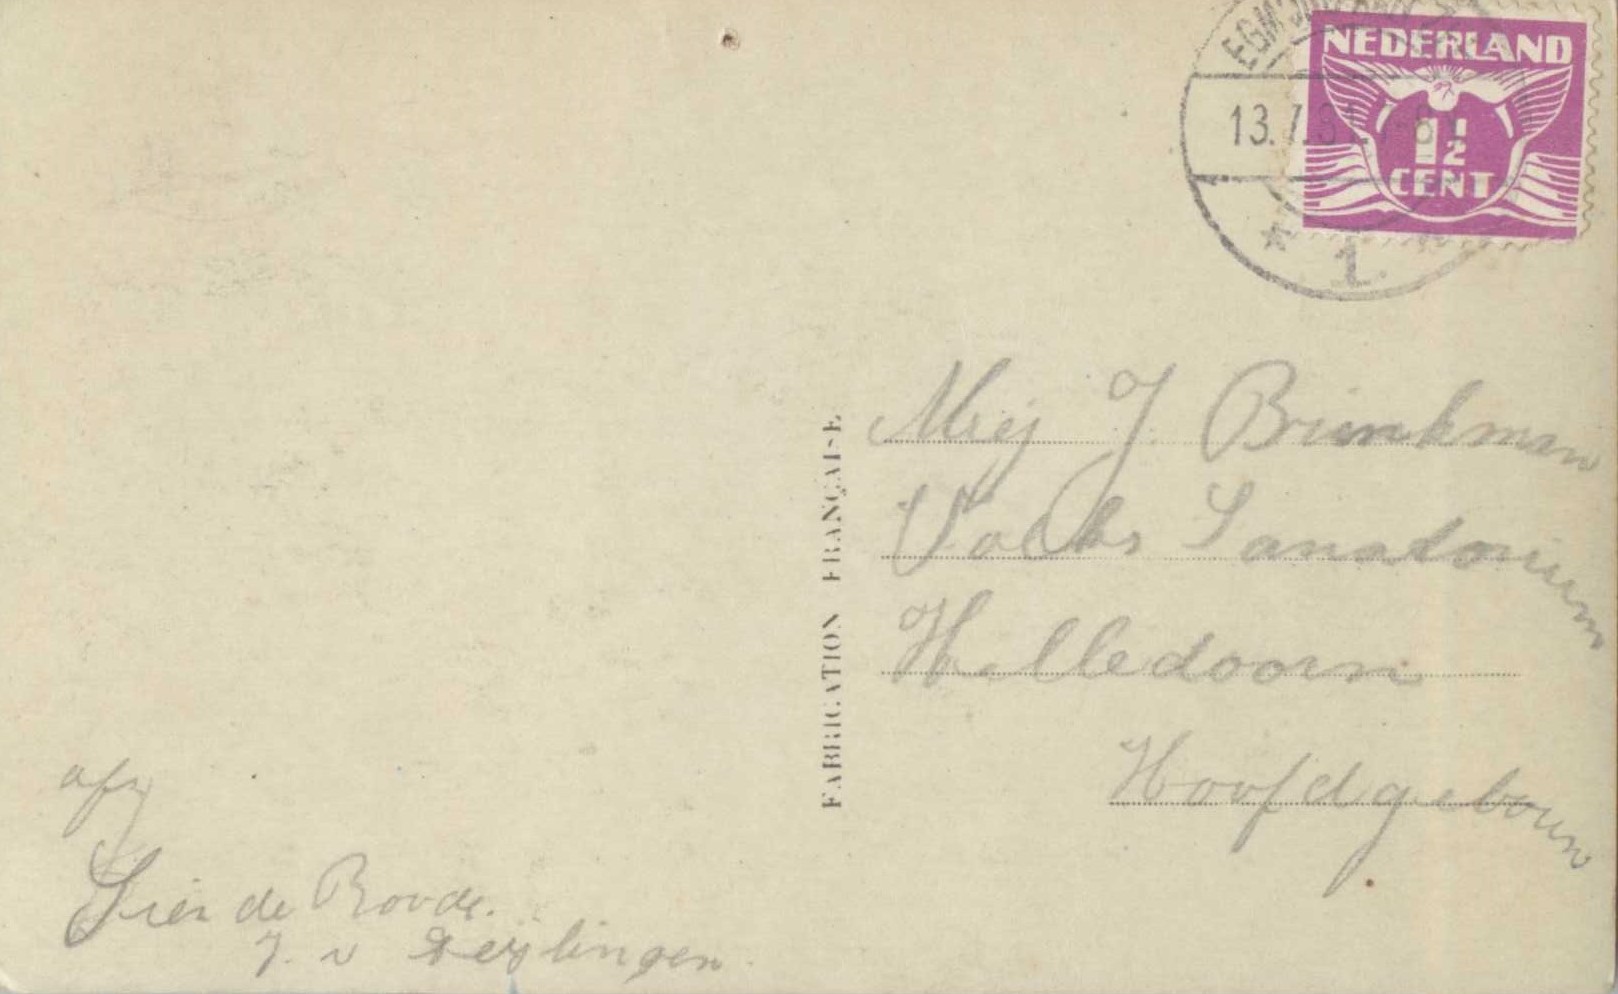 13.7.31
NEDERLAND
1 1/2
CENT
1
FABRICATION FRANÇAISE
Mej J. Brinkman
Volks Sanatorium
Hellendoorn
Hoofdgebouw
afz
de Roode.
J. v